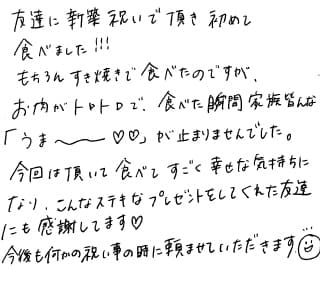 友達に新築祝いで頂き 初めて
食べました!!!
もちろんすき焼きで食べたのですが、
お肉がトロトロで、食べた瞬間家族皆んな
「うま〜〜♡♡」が止まりませんでした。
今回は頂いて食べてすごく幸せな気持ちに
なり、こんなステキなプレゼントをしてくれた友達
にも感謝してます♡
今後も何かの祝い事の時に頼ませていただきます